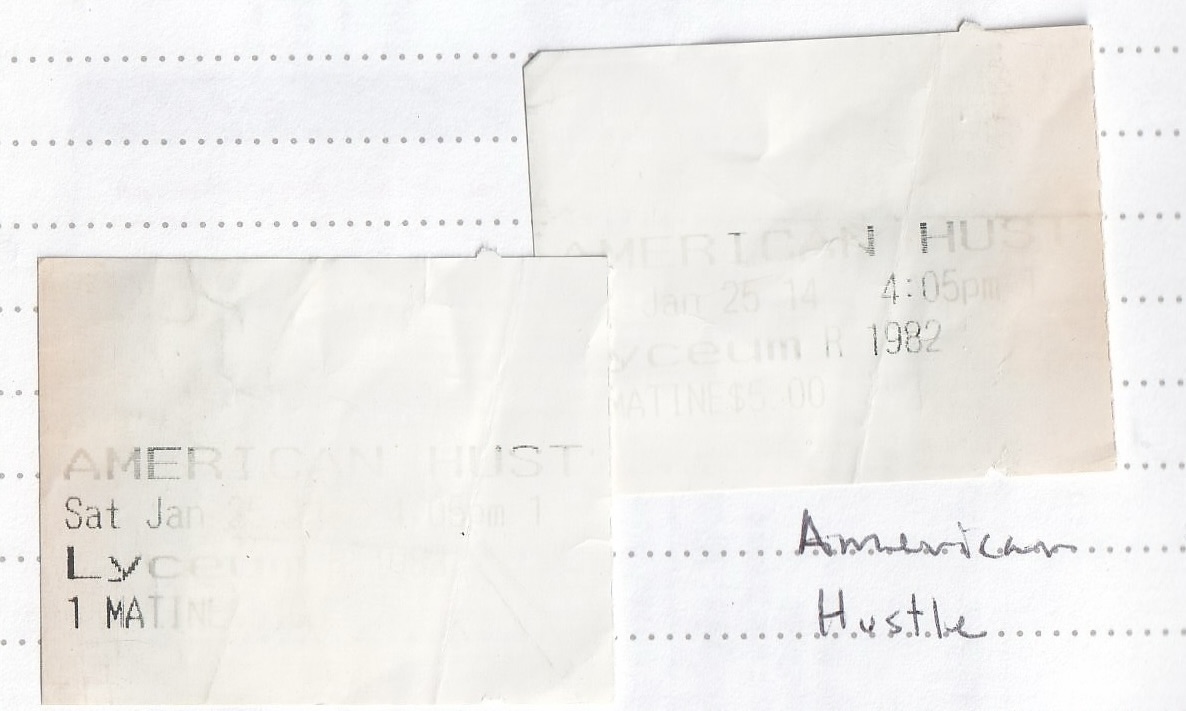 AMERICAN HUST
Jan 25 14 4:05pm 1
yceum R 1982
MATINE$5.00
AMERICAN HUST
Sat Jan :05pm 1
Lyceum
1 MATINE
American
Hustle